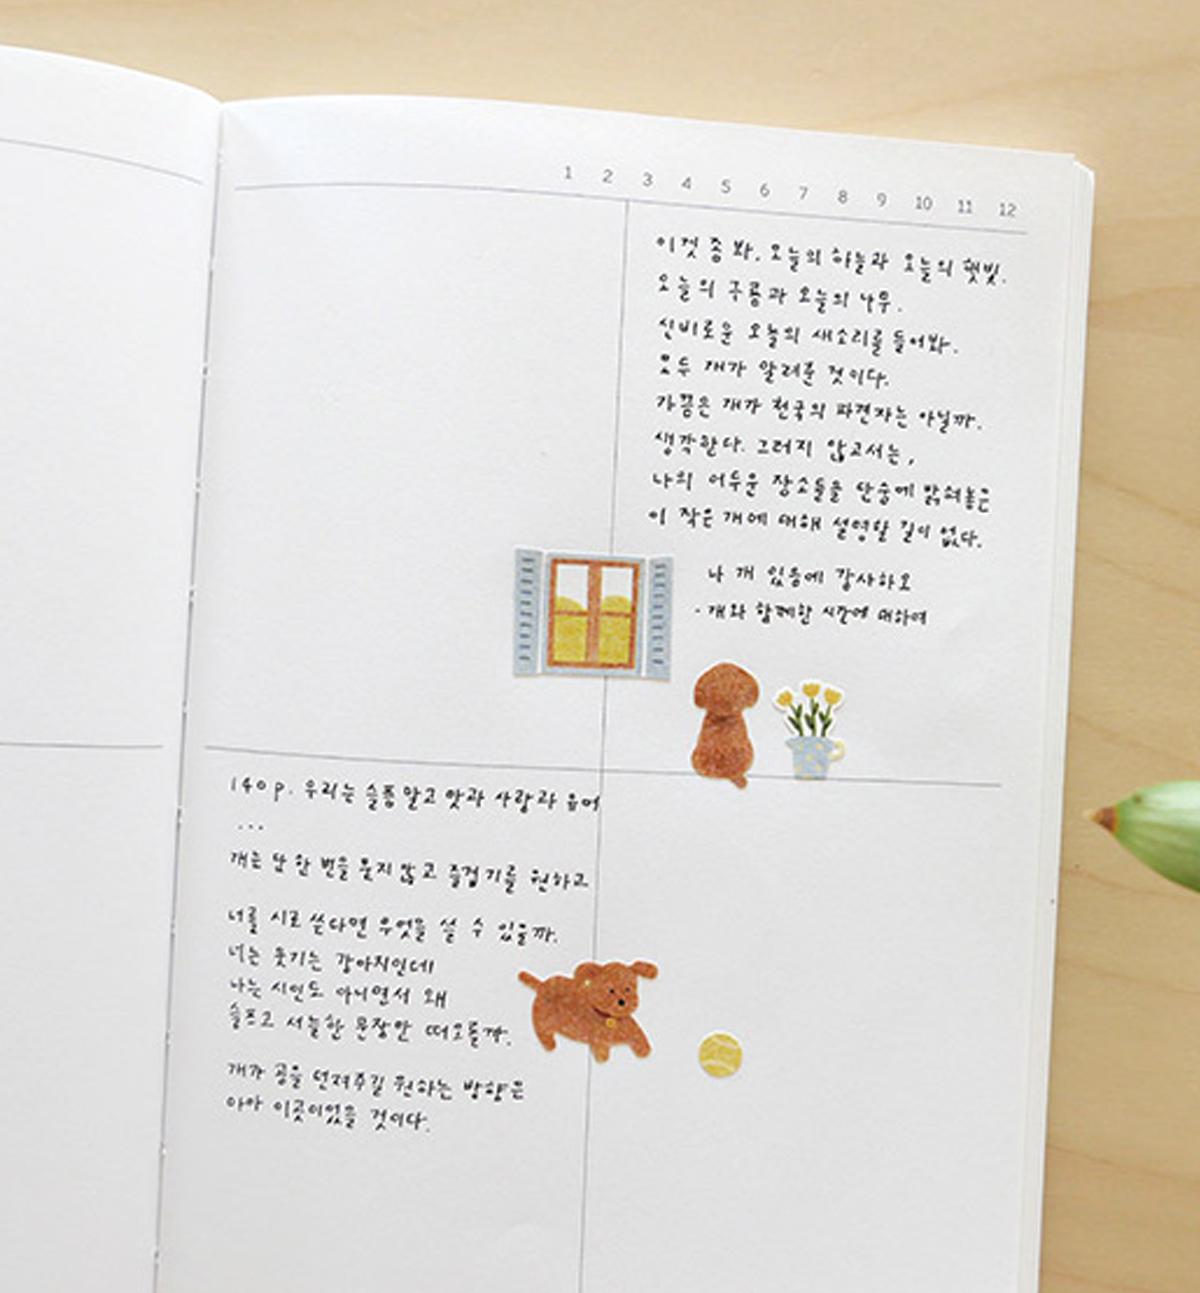 1 2 3 4 5 6 7 8 9 10 11 12
이것 좀 봐, 오늘의 하늘과 오늘의 햇빛.
오늘의 구름과 오늘의 나무.
신비로운 오늘의 새소리를 들어봐.
모두 개가 알려준 것이다.
가끔은 개가 천국의 파견자는 아닐까.
생각한다. 그러지 않고서는,
나의 어두운 장소들을 단숨에 밝혀놓은
이 작은 개에 대해 설명할 길이 없다.
나 개 있음에 감사하오
- 개와 함께한 시간에 대하여
140p. 우리는 슬픔 말고 맛과 사랑과 유머
...
개는 단 한 번을 묻지 않고 즐겁기를 원하고
너를 시로 쓴다면 무엇을 쓸 수 있을까.
너는 웃기는 강아지인데
나는 시인도 아니면서 왜
슬프고 서늘한 문장만 떠오를까.
개가 공을 던져주길 원하는 방향은
아마 이곳이었을 것이다.